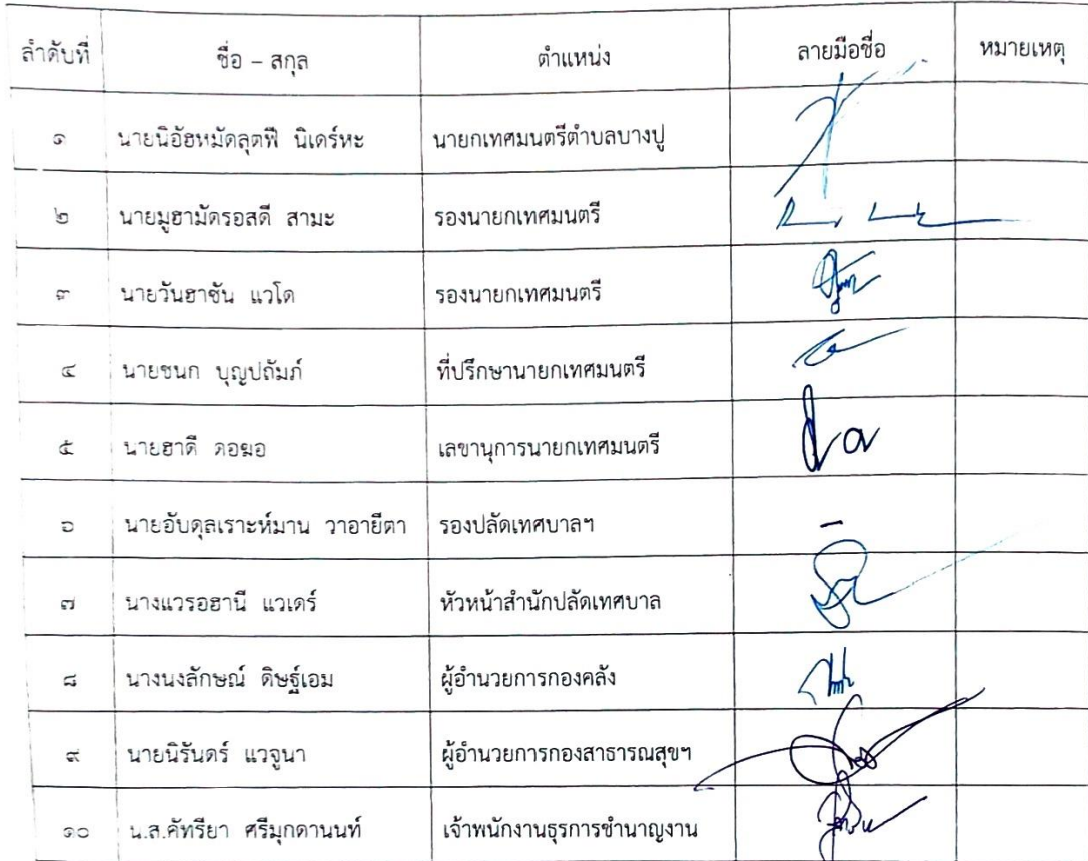 ลำดับที่ ชื่อ – สกุล ตำแหน่ง ลายมือชื่อ หมายเหตุ
๑ นายนิอัฮหมัดลุตฟี นิเดร์หะ นายกเทศมนตรีตำบลบางปู
๒ นายมูฮามัดรอสดี สามะ รองนายกเทศมนตรี
๓ นายวันฮาซัน แวโด รองนายกเทศมนตรี
๔ นายชนก บุญปถัมภ์ ที่ปรึกษานายกเทศมนตรี
๕ นายฮาดี ดอฆอ เลขานุการนายกเทศมนตรี
๖ นายอับดุลเราะห์มาน วาอายีตา รองปลัดเทศบาลฯ –
๗ นางแวรอฮานี แวเดร์ หัวหน้าสำนักปลัดเทศบาล
๘ นางนงลักษณ์ ดิษฐ์เอม ผู้อำนวยการกองคลัง
๙ นายนิรันดร์ แวจูนา ผู้อำนวยการกองสาธารณสุขฯ
๑๐ น.ส.คัทรียา ศรีมุกดานนท์ เจ้าพนักงานธุรการชำนาญงาน